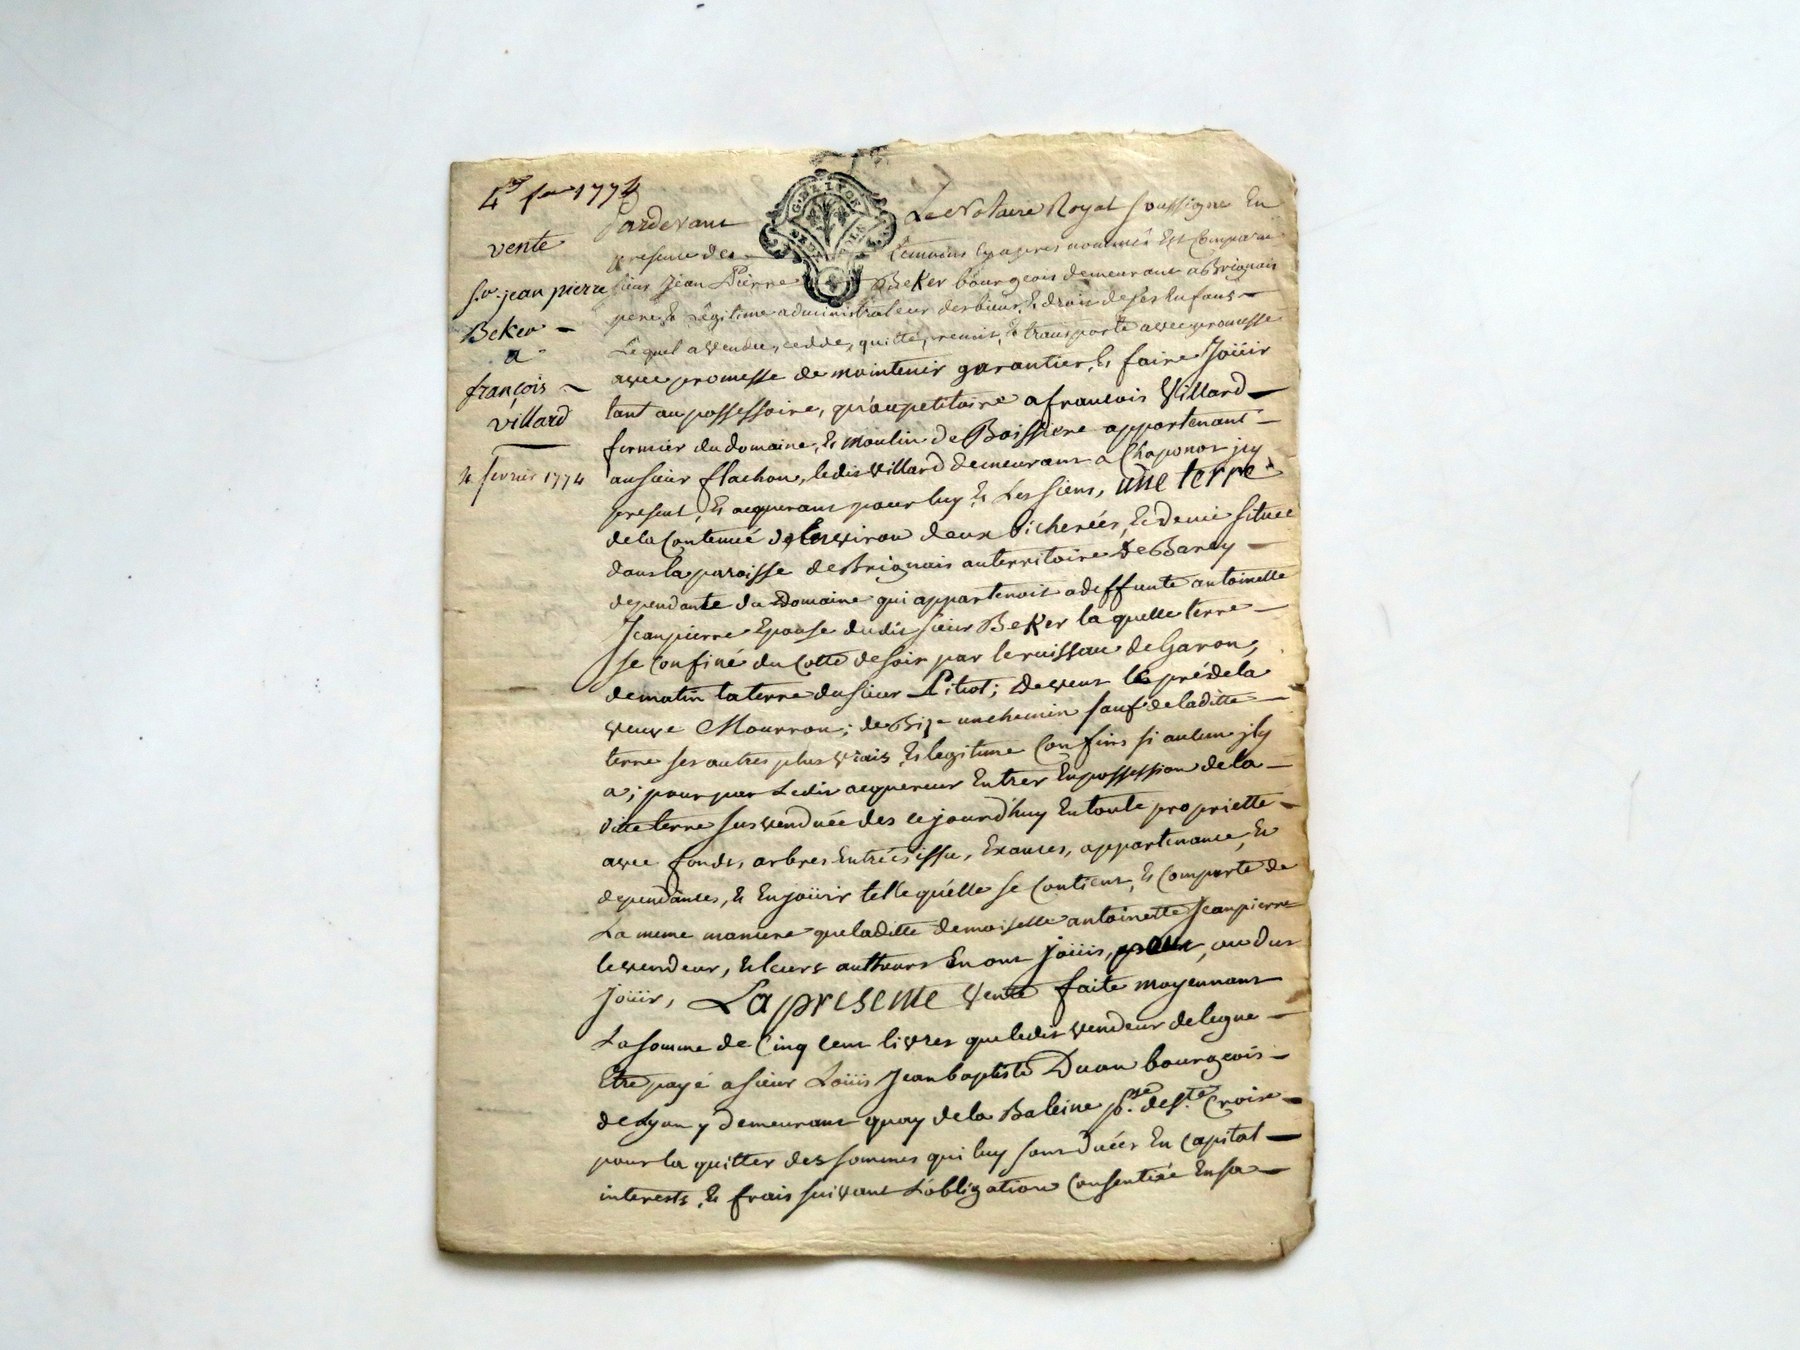 4 fer 1774
vente
Sr. jean pierre
Beker
a
françois
villard
4 fevrier 1774
G. DE LYON
Pardevant Le Notaire Royal soussigné En
presence des Temoins cyapres nommés Est Comparu
sieur Jean Pierre Beker bourgeois demeurant a Brignais
pere & Legitime administrateur des biens & droits de ses Enfans
Lequel a vendu, cedde, quitté, remis, & transporté avec promesse
avec promesse de maintenir garantier, & faire Joüir
tant au possessoire, qu'au petitoire a francois Villard
fermier du domaine, & moulin de Boissiere appartenant
au sieur flachon, ledit Villard demeurant a Chaponost jcy
present, & acquerant pour luy & Les siens, une terre
de la Contenué d'Environ deux bicherées, & demie située
dans la paroisse de Brignais au territoire de Barey
dependante du Domaine qui appartenoit a deffunte antoinette
Jeanpierre Epouse dudit sieur Beker la quelle terre
se Confine du Cotte de soir par le ruisseau de Garon,
de matin la terre du sieur Pitiot; de vent le pré de la
veuve Mourron; de Bize un chemin sauf de laditte
terre ses autres plus vrais, & legitime Confins si aucun jl y
a; pour par Ledit acquereur Entrer En possession de la
ditte terre sus venduée des ce jourd'huy En toute propriette
avec fonds, arbres Entrées issu, Exances, appartenance, &
dependances, & En joüir telle qu'elle se Contient, & Comporte de
La meme maniere que laditte demoiselle antoinette Jeanpierre
le vendeur, & leurs autheurs En ont joüis, peu, ou dut
joüir, La presente Vente faite moyennant
La somme de Cinq Cent livres que ledit vendeur delegue
Etre payé a sieur Loüis Jean baptiste Duan bourgeois
de Lyon y demeurant quay de la Baleine psse. de Ste. Croix
pour la quitter des sommes qui luy sont duées En Capital
interests, & frais suivant L'obligation Consentiée En sa